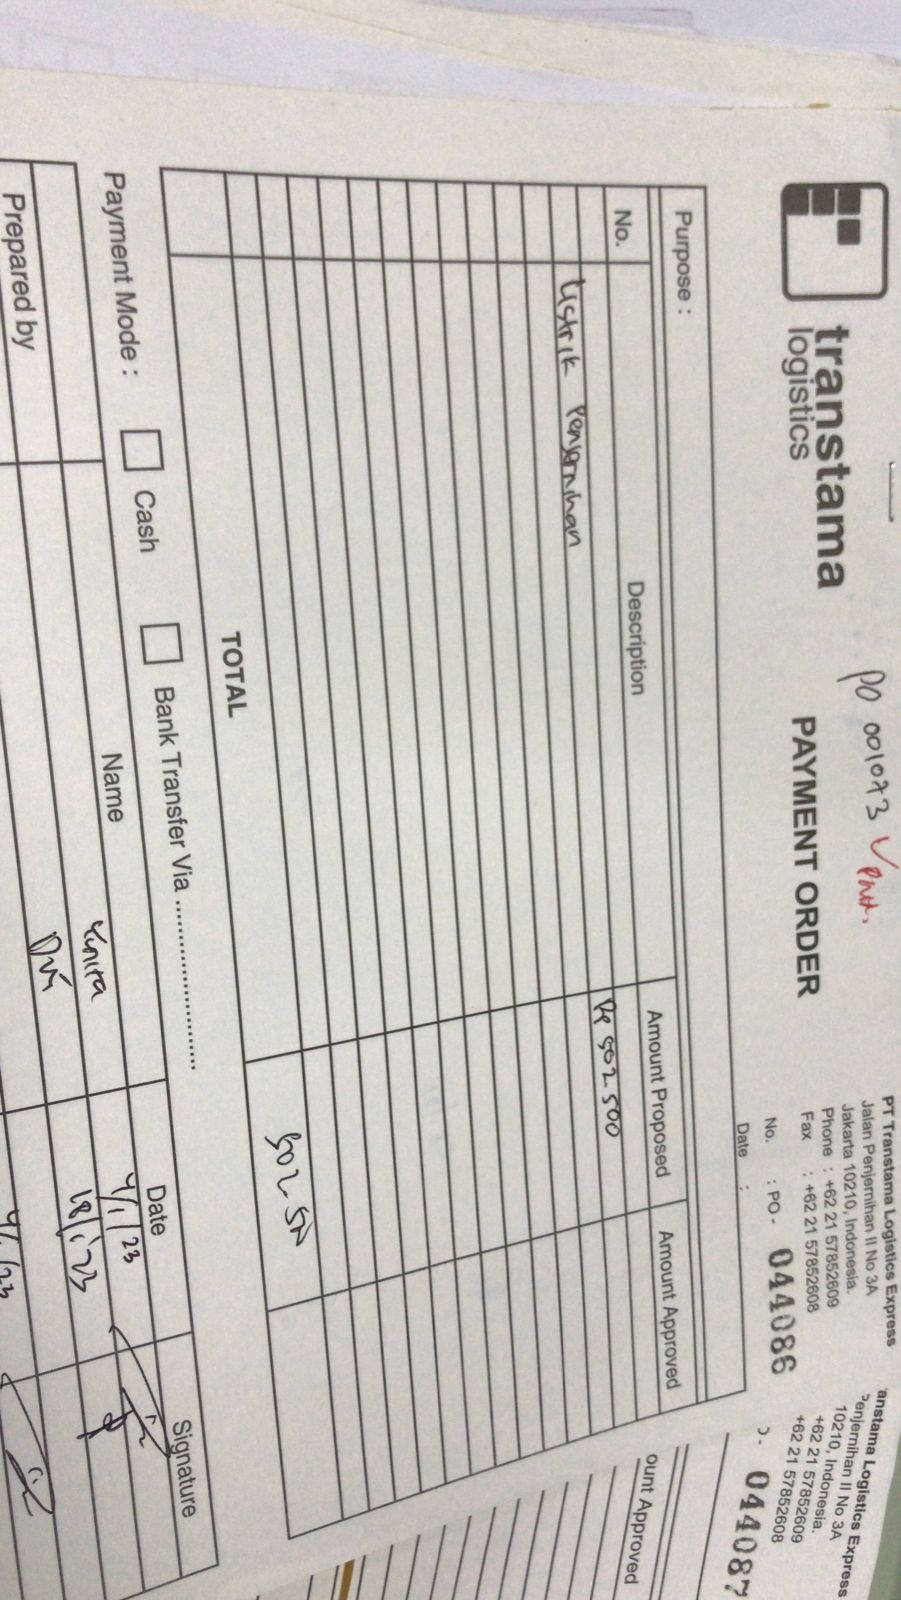 PO 001093 ✓
transtama
logistics
PAYMENT ORDER
PT Transtama Logistics Express
Jalan Penjernihan II No 3A
Jakarta 10210, Indonesia.
Phone : +62 21 57852609
Fax : +62 21 57852608
No. : PO - 044086
Date :
Purpose :
No. Description Amount Proposed Amount Approved
Rp 502.500
Listrik Penjernihan
TOTAL 502.500
Payment Mode : Cash Bank Transfer Via ....................
Name Date Signature
Yunita 4/1/23
Dwi 18/1/23
Prepared by 4/1/23
anstama Logistics Express
enjernihan II No 3A
10210, Indonesia.
+62 21 57852609
+62 21 57852608
044087
ount Approved